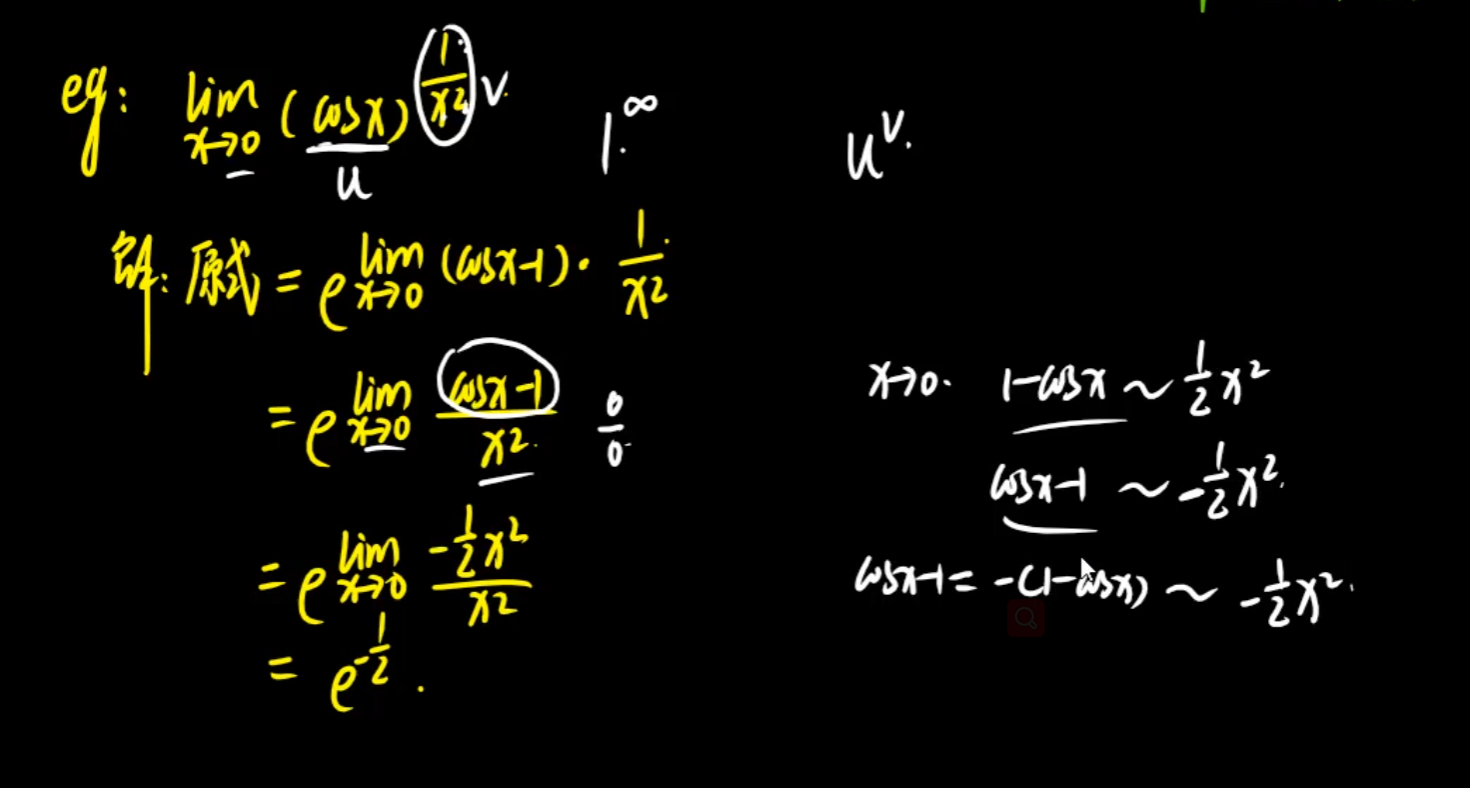 eg: lim x→0 (cosx)^(1/x²) v 1^∞ u^v.
u
解: 原式 = e^(lim x→0 (cosx-1)·1/x²)
= e^(lim x→0 (cosx-1)/x²) 0/0
= e^(lim x→0 (-1/2 x²)/x²)
= e^(-1/2).
x→0. 1-cosx ~ 1/2 x²
cosx-1 ~ -1/2 x².
cosx-1 = -(1-cosx) ~ -1/2 x².